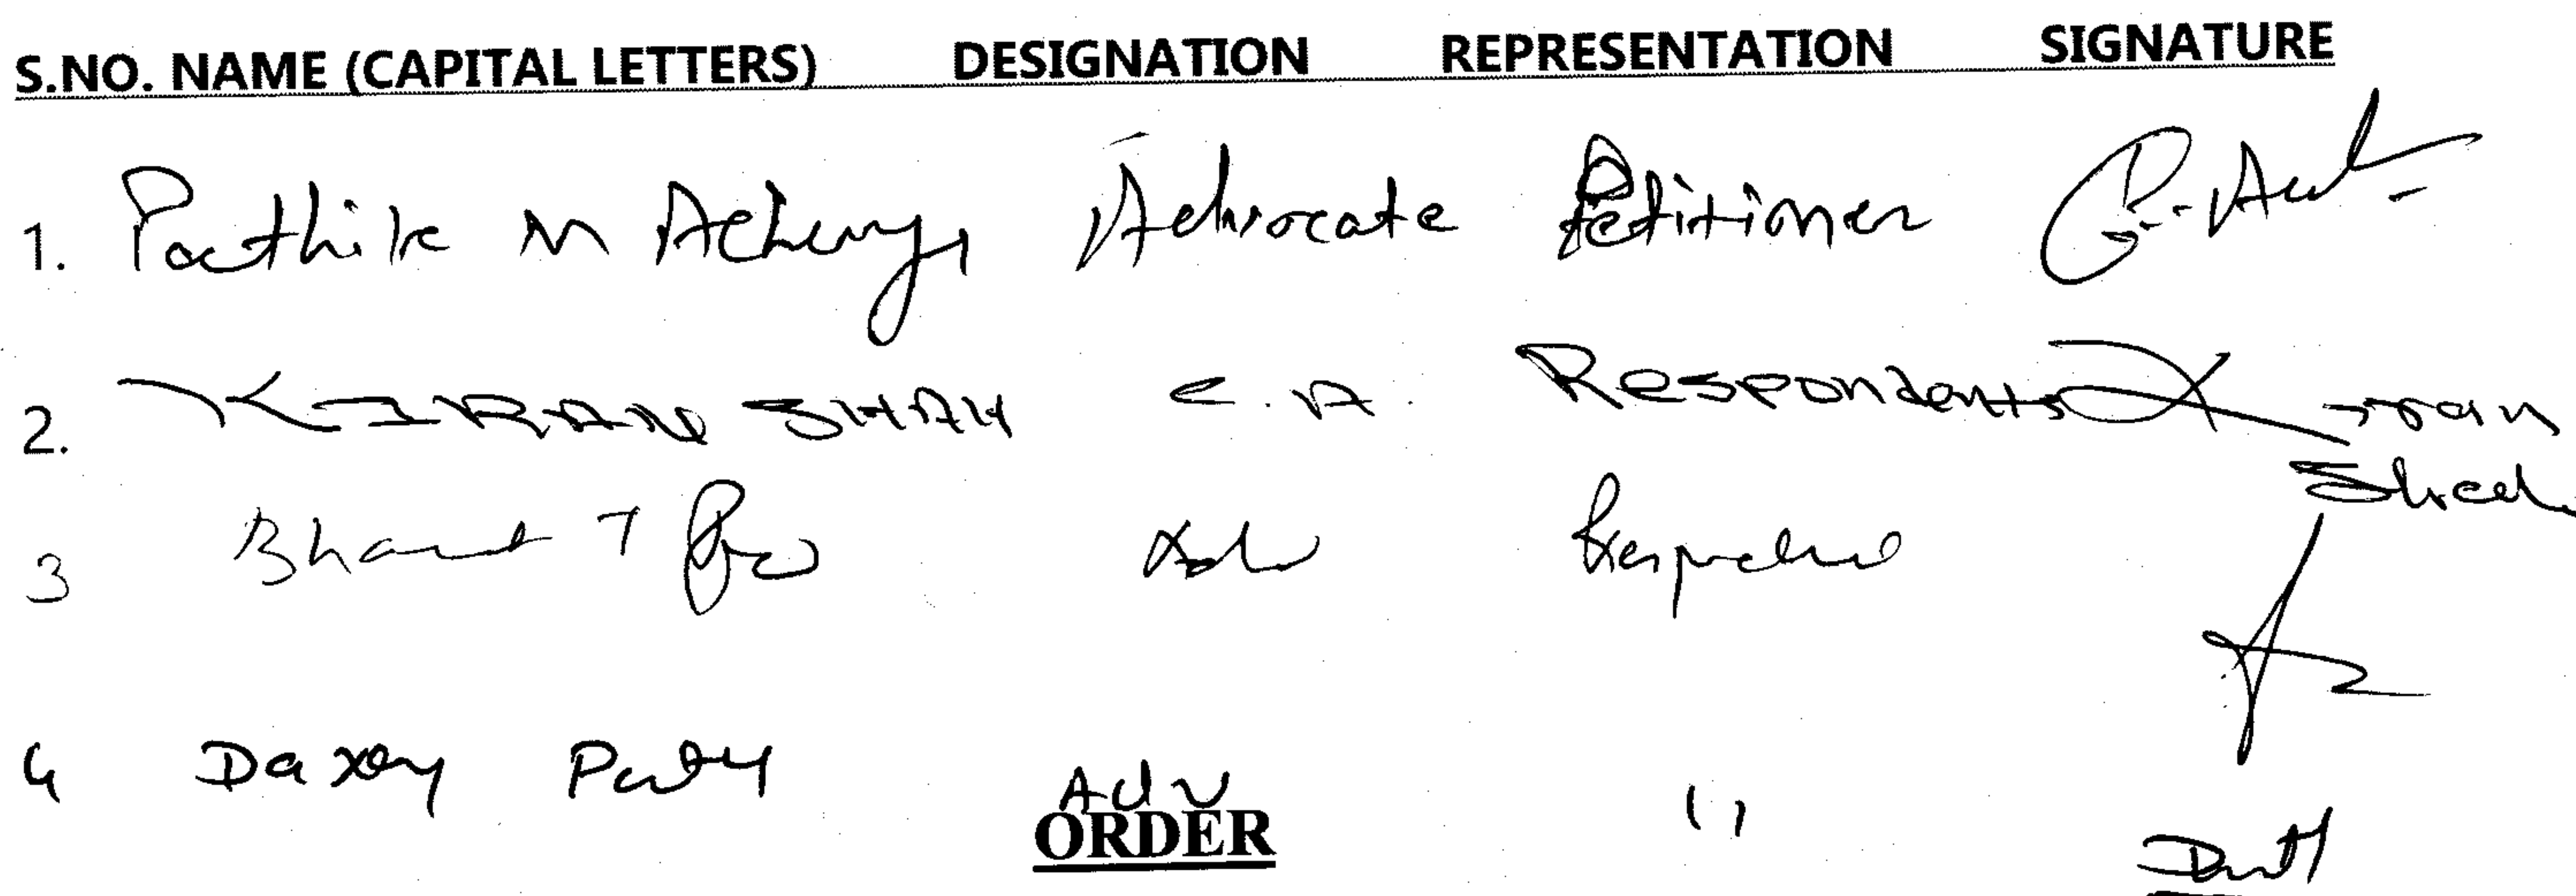 S.NO. NAME (CAPITAL LETTERS) DESIGNATION REPRESENTATION SIGNATURE
1. Pathik M Acharya Advocate Petitioner
2. KIRAN SHAH C.A. Respondents Kiran
Shah
3 Bharat T Adv
4 Adv "
ORDER